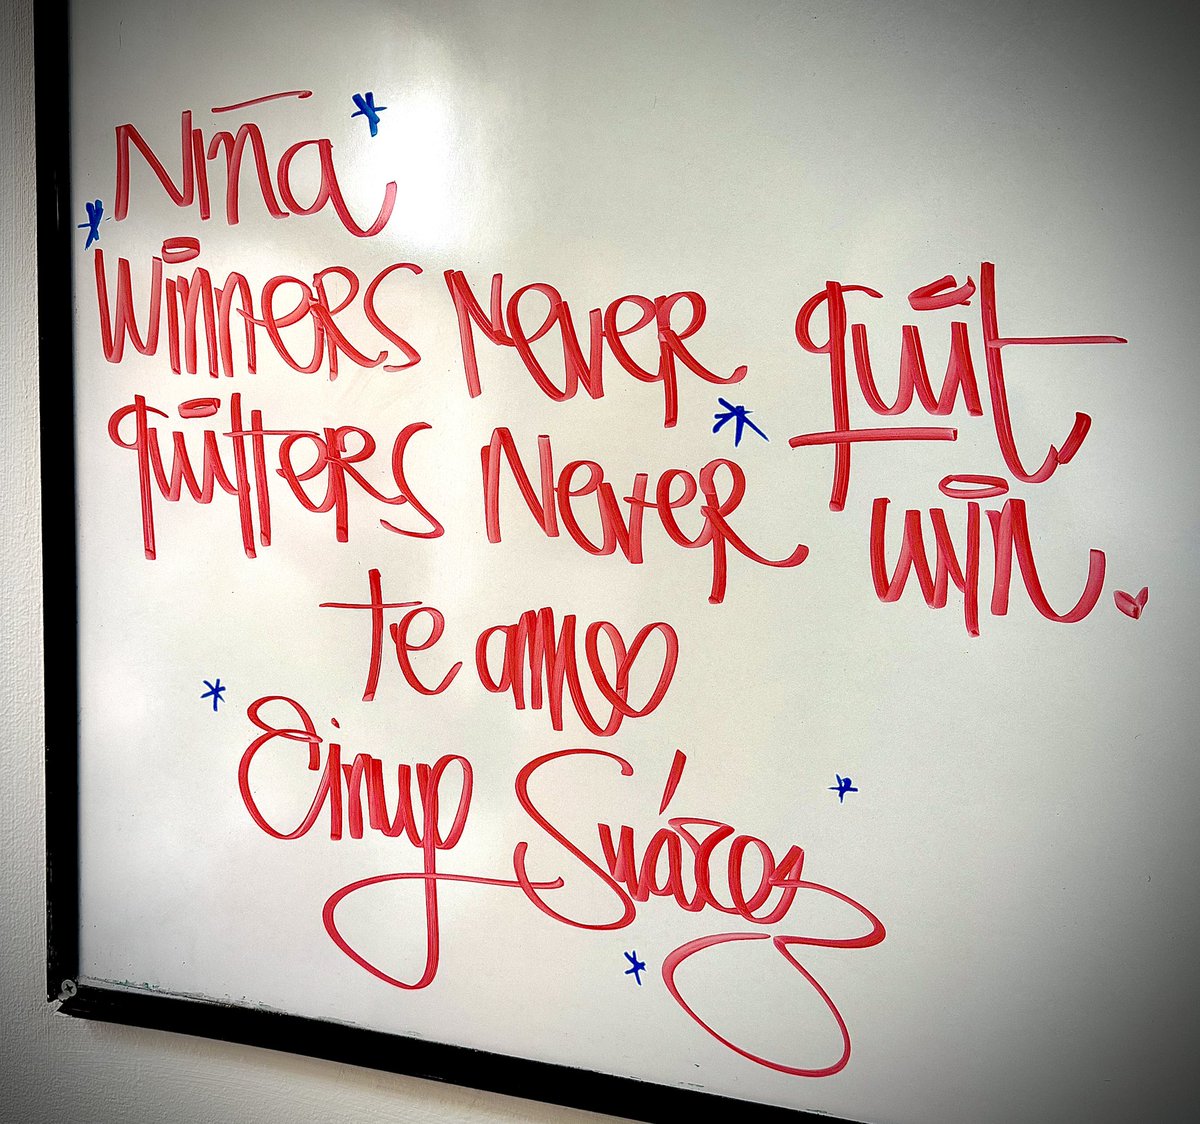 Niña
Winners Never quit,
quitters Never win.
te amo
Suárez